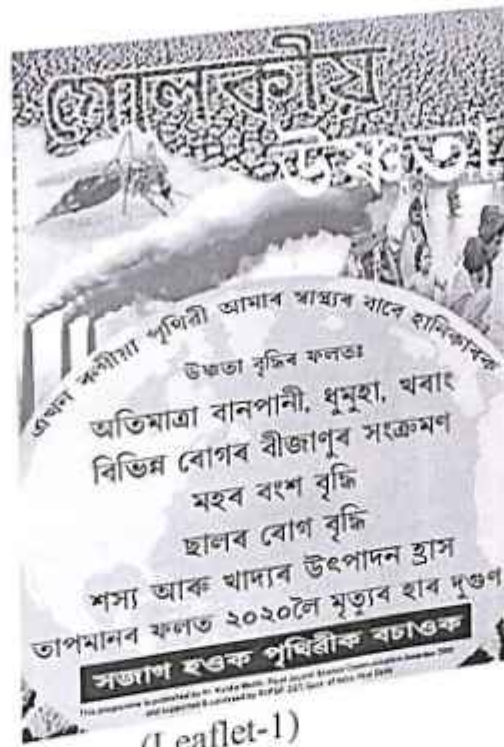 গোলকীয়
উষ্ণতা
এখন ৰুগীয়া পৃথিৱী আমাৰ স্বাস্থ্যৰ বাবে হানিকাৰক
উষ্ণতা বৃদ্ধিৰ ফলতঃ
অতিমাত্ৰা বানপানী, ধুমুহা, খৰাং
বিভিন্ন ৰোগৰ বীজাণুৰ সংক্ৰমণ
মহৰ বংশ বৃদ্ধি
ছালৰ ৰোগ বৃদ্ধি
শস্য আৰু খাদ্যৰ উৎপাদন হ্ৰাস
তাপমানৰ ফলত ২০২০লৈ মৃত্যুৰ হাৰ দুগুণ
সজাগ হওক পৃথিৱীক বচাওক
This programme is
and supported &
(Leaflet-1)